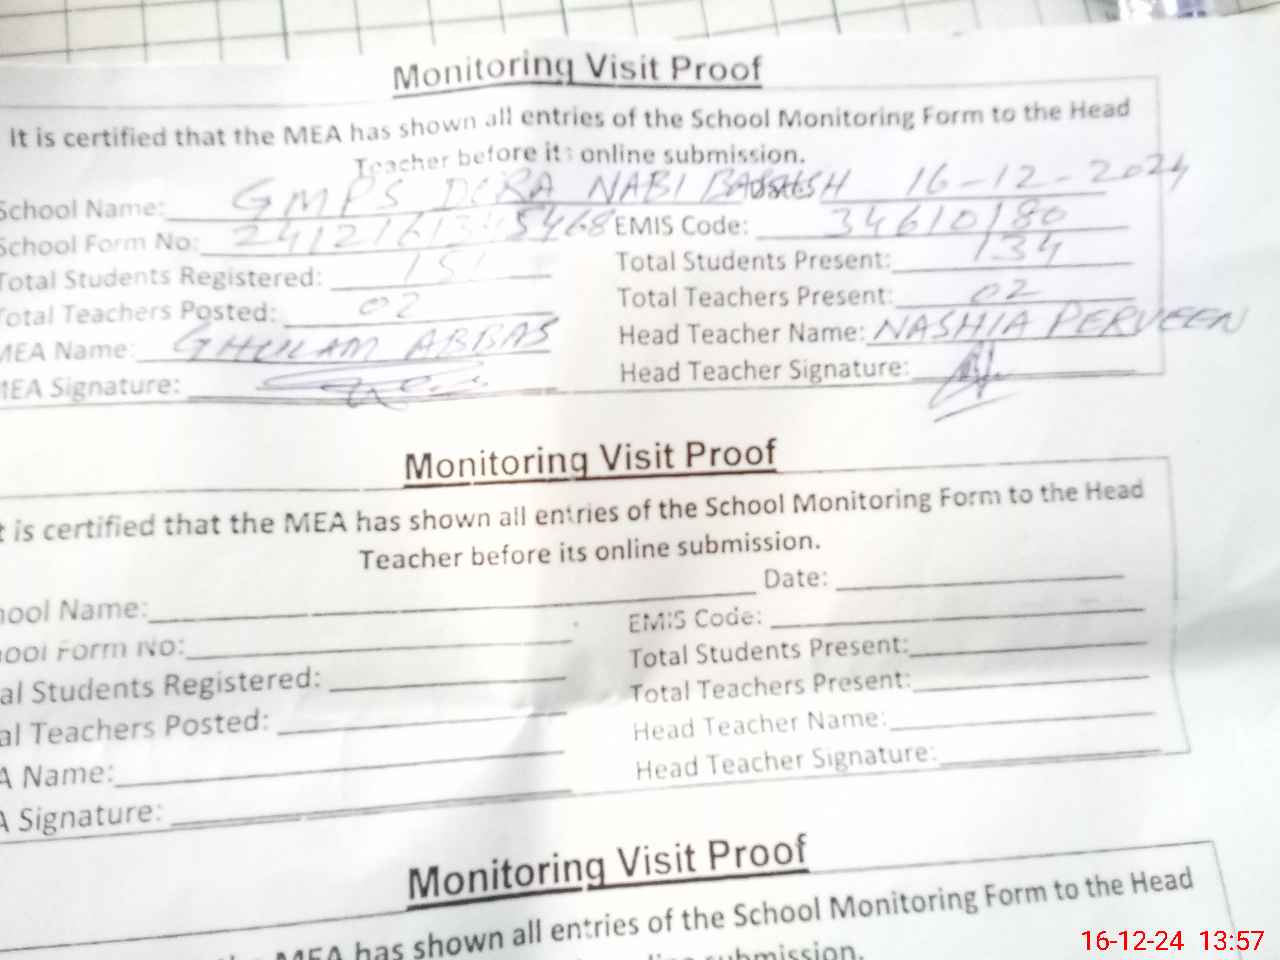 Monitoring Visit Proof
It is certified that the MEA has shown all entries of the School Monitoring Form to the Head
Teacher before its online submission.
School Name: GMPS DERA NABI BAKHSH 16-12-2024
School Form No: EMIS Code: 34610180
Total Students Registered: 151 Total Students Present: 134
Total Teachers Posted: 02 Total Teachers Present: 02
MEA Name: GHULAM ABBAS Head Teacher Name: NASHIA PERVEEN
MEA Signature: Head Teacher Signature:
Monitoring Visit Proof
t is certified that the MEA has shown all entries of the School Monitoring Form to the Head
Teacher before its online submission.
hool Name: Date:
ool Form No: EMIS Code:
al Students Registered: Total Students Present:
al Teachers Posted: Total Teachers Present:
A Name: Head Teacher Name:
A Signature: Head Teacher Signature:
Monitoring Visit Proof
MEA has shown all entries of the School Monitoring Form to the Head
submission.
16-12-24 13:57